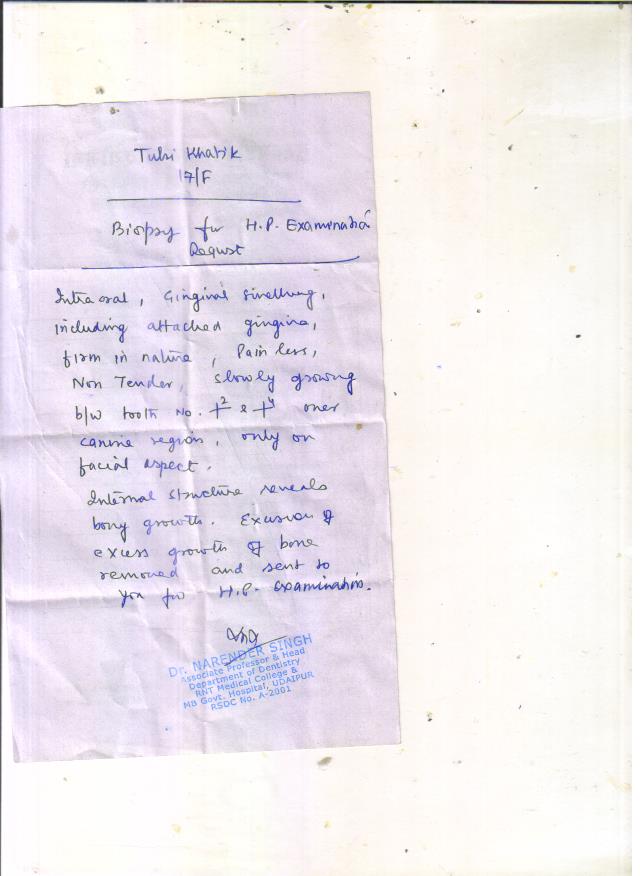 Tulsi Khatik
17/F
Biopsy for H.P. Examination
Request
Intra oral, Gingival swelling,
including attached gingiva,
firm in nature, Painless,
Non Tender, slowly growing
b/w tooth No. +2 & +4 over
canine region, only on
facial aspect.
Internal structure reveals
bony growth. Excision of
excess growth of bone
removed and sent to
you for H.P. Examination.
Dr. NARENDER SINGH
Associate Professor & Head
Department of Dentistry
RNT Medical College &
MB Govt. Hospital, UDAIPUR
RSDC No. A-2001